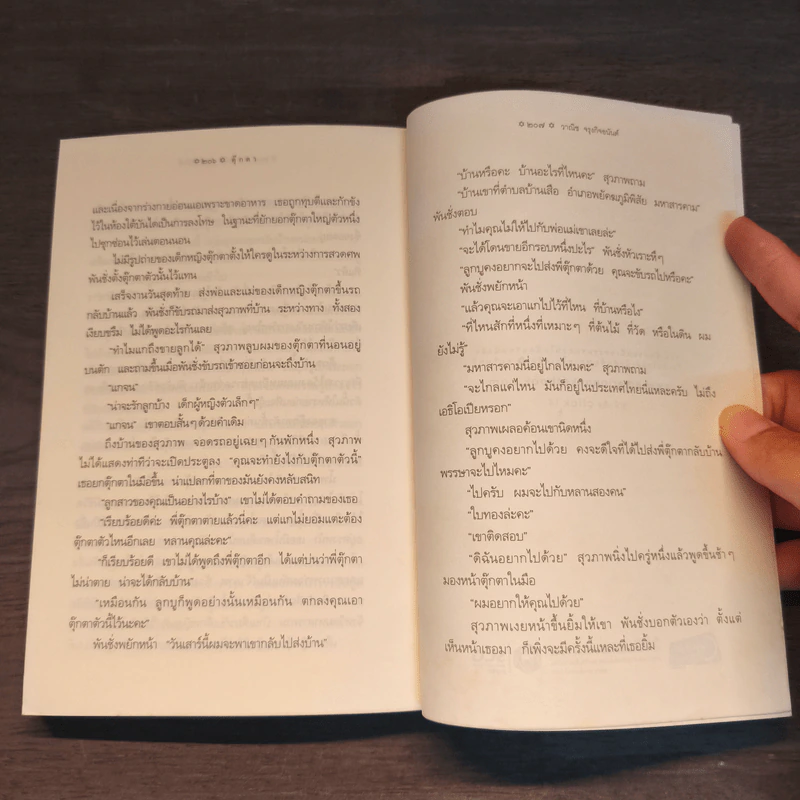 ๒๐๖ ตุ๊กตา
และเนื่องจากร่างกายอ่อนแอเพราะขาดอาหาร เธอถูกทุบตีและกักขัง
ไว้ในห้องใต้บันไดเป็นการลงโทษ ในฐานะที่ยักยอกตุ๊กตาใหญ่ตัวหนึ่ง
ไปซุกซ่อนไว้เล่นตอนนอน
ไม่มีรูปถ่ายของเด็กหญิงตุ๊กตาตั้งให้ใครดูในระหว่างการสวดศพ
พันชั่งตั้งตุ๊กตาตัวนั้นไว้แทน
เสร็จงานวันสุดท้าย ส่งพ่อและแม่ของเด็กหญิงตุ๊กตาขึ้นรถ
กลับบ้านแล้ว พันชั่งก็ขับรถมาส่งสุวภาพที่บ้าน ระหว่างทาง ทั้งสอง
เงียบขรึม ไม่ได้พูดอะไรกันเลย
“ทำไมแกถึงขายลูกได้” สุวภาพลูบผมของตุ๊กตาที่นอนอยู่
บนตัก และถามขึ้นเมื่อพันชั่งขับรถเข้าซอยก่อนจะถึงบ้าน
“แกจน”
“น่าจะรักลูกบ้าง เด็กผู้หญิงตัวเล็กๆ”
“แกจน” เขาตอบสั้นๆ ด้วยคำเดิม
ถึงบ้านของสุวภาพ จอดรถอยู่เฉยๆ กันพักหนึ่ง สุวภาพ
ไม่ได้แสดงท่าทีว่าจะเปิดประตูลง “คุณจะทำยังไงกับตุ๊กตาตัวนี้”
เธอยกตุ๊กตาในมือขึ้น น่าแปลกที่ตาของมันยังคงหลับสนิท
“ลูกสาวของคุณเป็นอย่างไรบ้าง” เขาไม่ได้ตอบคำถามของเธอ
“เรียบร้อยดีค่ะ พี่ตุ๊กตาตายแล้วนี่คะ แต่แกไม่ยอมแตะต้อง
ตุ๊กตาตัวไหนอีกเลย หลานคุณล่ะคะ”
“ก็เรียบร้อยดี เขาไม่ได้พูดถึงพี่ตุ๊กตาอีก ได้แต่บ่นว่าพี่ตุ๊กตา
ไม่น่าตาย น่าจะได้กลับบ้าน”
“เหมือนกัน ลูกบูก็พูดอย่างนั้นเหมือนกัน ตกลงคุณเอา
ตุ๊กตาตัวนี้ไว้นะคะ”
พันชั่งพยักหน้า “วันเสาร์นี้ผมจะพาเขากลับไปส่งบ้าน”
๒๐๗ วาณิช จรุงกิจอนันต์
“บ้านหรือคะ บ้านอะไรที่ไหนคะ” สุวภาพถาม
“บ้านเขาที่ตำบลบ้านเสือ อำเภอพยัคฆภูมิพิสัย มหาสารคาม”
พันชั่งตอบ
“ทำไมคุณไม่ให้ไปกับพ่อแม่เขาเลยล่ะ”
“จะได้โดนขายอีกรอบหนึ่งปะไร” พันชั่งหัวเราะหึๆ
“ลูกบูคงอยากจะไปส่งพี่ตุ๊กตาด้วย คุณจะขับรถไปหรือคะ”
พันชั่งพยักหน้า
“แล้วคุณจะเอาแกไปไว้ที่ไหน ที่บ้านหรือไง”
“ที่ไหนสักที่หนึ่งที่เหมาะๆ ที่ต้นไม้ ที่วัด หรือในดิน ผม
ยังไม่รู้”
“มหาสารคามนี่อยู่ไกลไหมคะ” สุวภาพถาม
“จะไกลแค่ไหน มันก็อยู่ในประเทศไทยนี่แหละครับ ไม่ถึง
เอธิโอเปียหรอก”
สุวภาพเผลอค้อนเขานิดหนึ่ง
“ลูกบูคงอยากไปด้วย คงจะดีใจที่ได้ไปส่งพี่ตุ๊กตากลับบ้าน
พรรษาจะไปไหมคะ”
“ไปครับ ผมจะไปกับหลานสองคน”
“ใบทองล่ะคะ”
“เขาติดสอบ”
“ดิฉันอยากไปด้วย” สุวภาพนิ่งไปครู่หนึ่งแล้วพูดขึ้นช้าๆ
มองหน้าตุ๊กตาในมือ
“ผมอยากให้คุณไปด้วย”
สุวภาพเงยหน้าขึ้นยิ้มให้เขา พันชั่งบอกตัวเองว่า ตั้งแต่
เห็นหน้าเธอมา ก็เพิ่งจะมีครั้งนี้แหละที่เธอยิ้ม